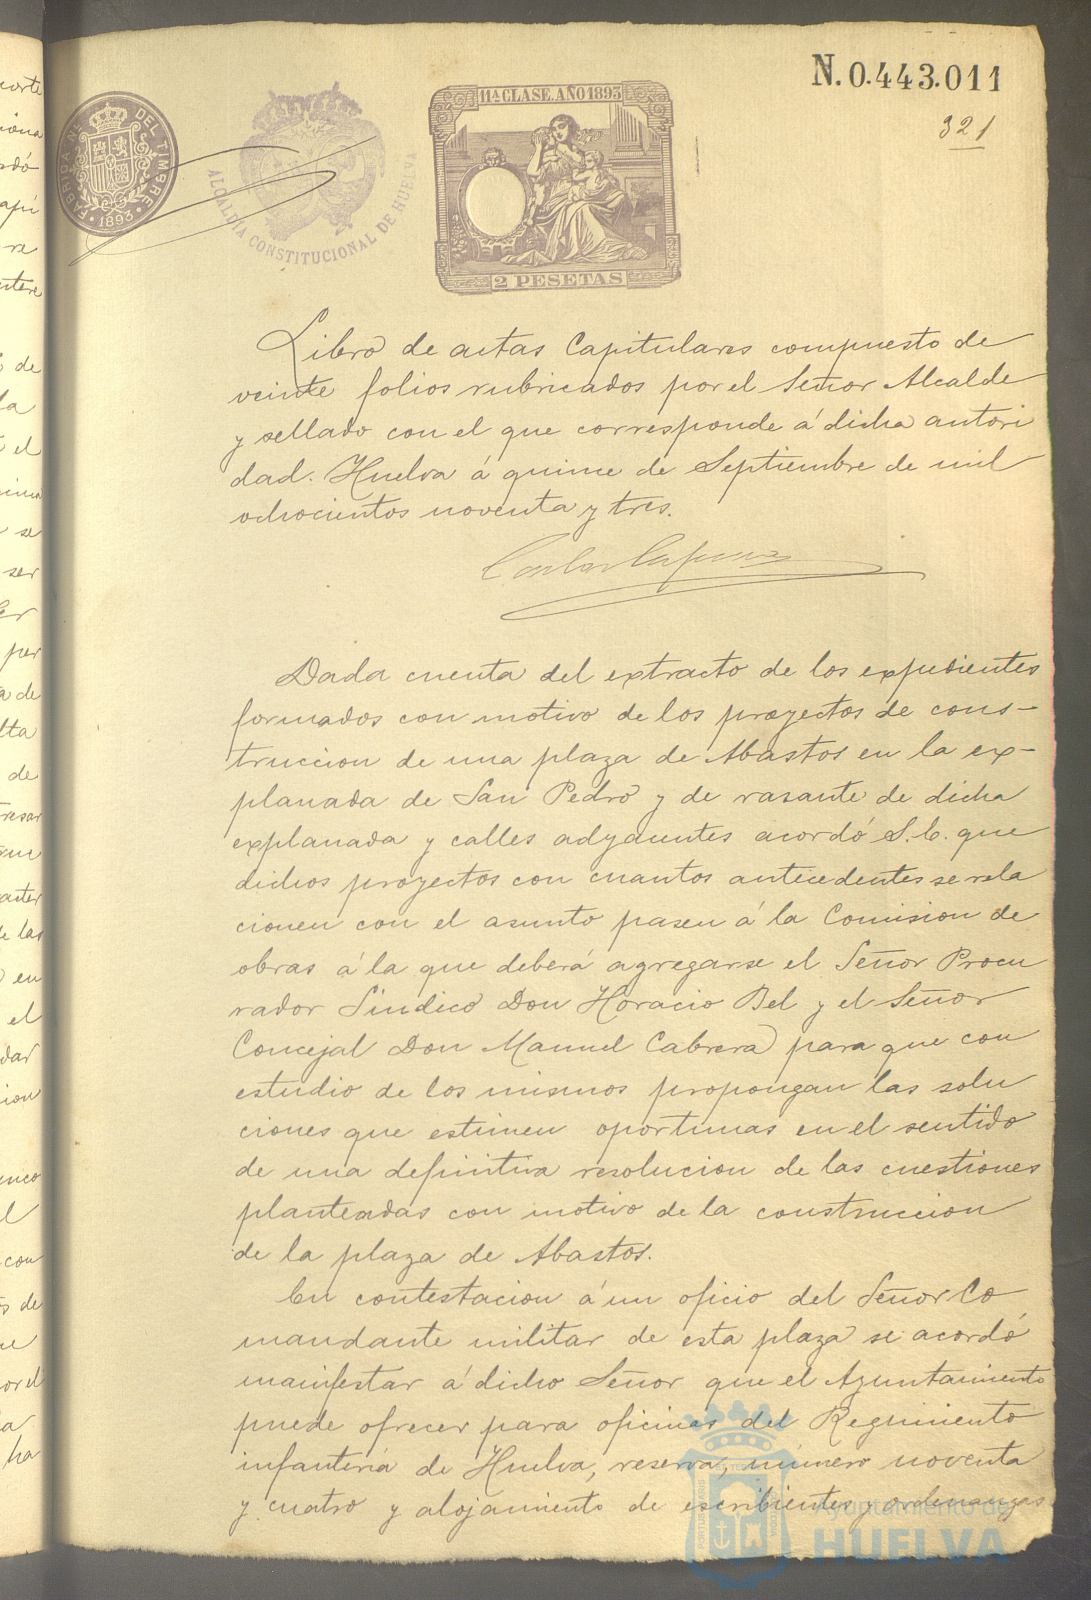 N. 0.443.011
321
FABRICA NACIONAL DEL TIMBRE
1893
ALCALDIA CONSTITUCIONAL DE HUELVA
11ª CLASE. AÑO 1893
2 PESETAS
Libro de actas Capitulares compuesto de
veinte folios rubricados por el Señor Alcalde
y sellado con el que corresponde á dicha autori
dad. Huelva á quince de Septiembre de mil
ochocientos noventa y tres.
Dada cuenta del extracto de los expedientes
formados con motivo de los proyectos de cons-
truccion de una plaza de Abastos en la ex-
planada de San Pedro y de rasante de dicha
explanada y calles adyacentes acordó S. C. que
dichos proyectos con cuantos antecedentes se rela
cionen con el asunto pasen á la Comision de
obras á la que deberá agregarse el Señor Procu
rador Síndico Don Horacio Bel y el Señor
Concejal Don Manuel Cabrera para que con
estudio de los mismos propongan las solu
ciones que estimen oportunas en el sentido
de una definitiva resolucion de las cuestiones
planteadas con motivo de la construccion
de la plaza de Abastos.
En contestacion á un oficio del Señor Co
mandante militar de esta plaza se acordó
manifestar á dicho Señor que el Ayuntamiento
puede ofrecer para oficinas del Regimiento
infantería de Huelva, reserva, número noventa
y cuatro y alojamiento de escribientes y ordenanzas
Ayuntamiento de
HUELVA